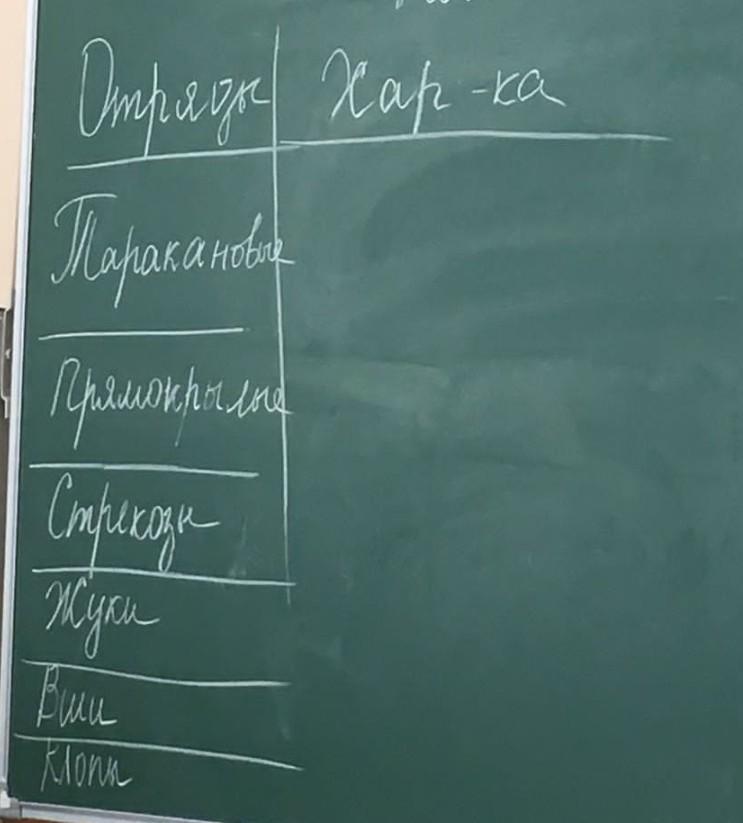 Отряды Хар-ка
Таракановые
Прямокрылые
Стрекозы
Жуки
Вши
Клопы